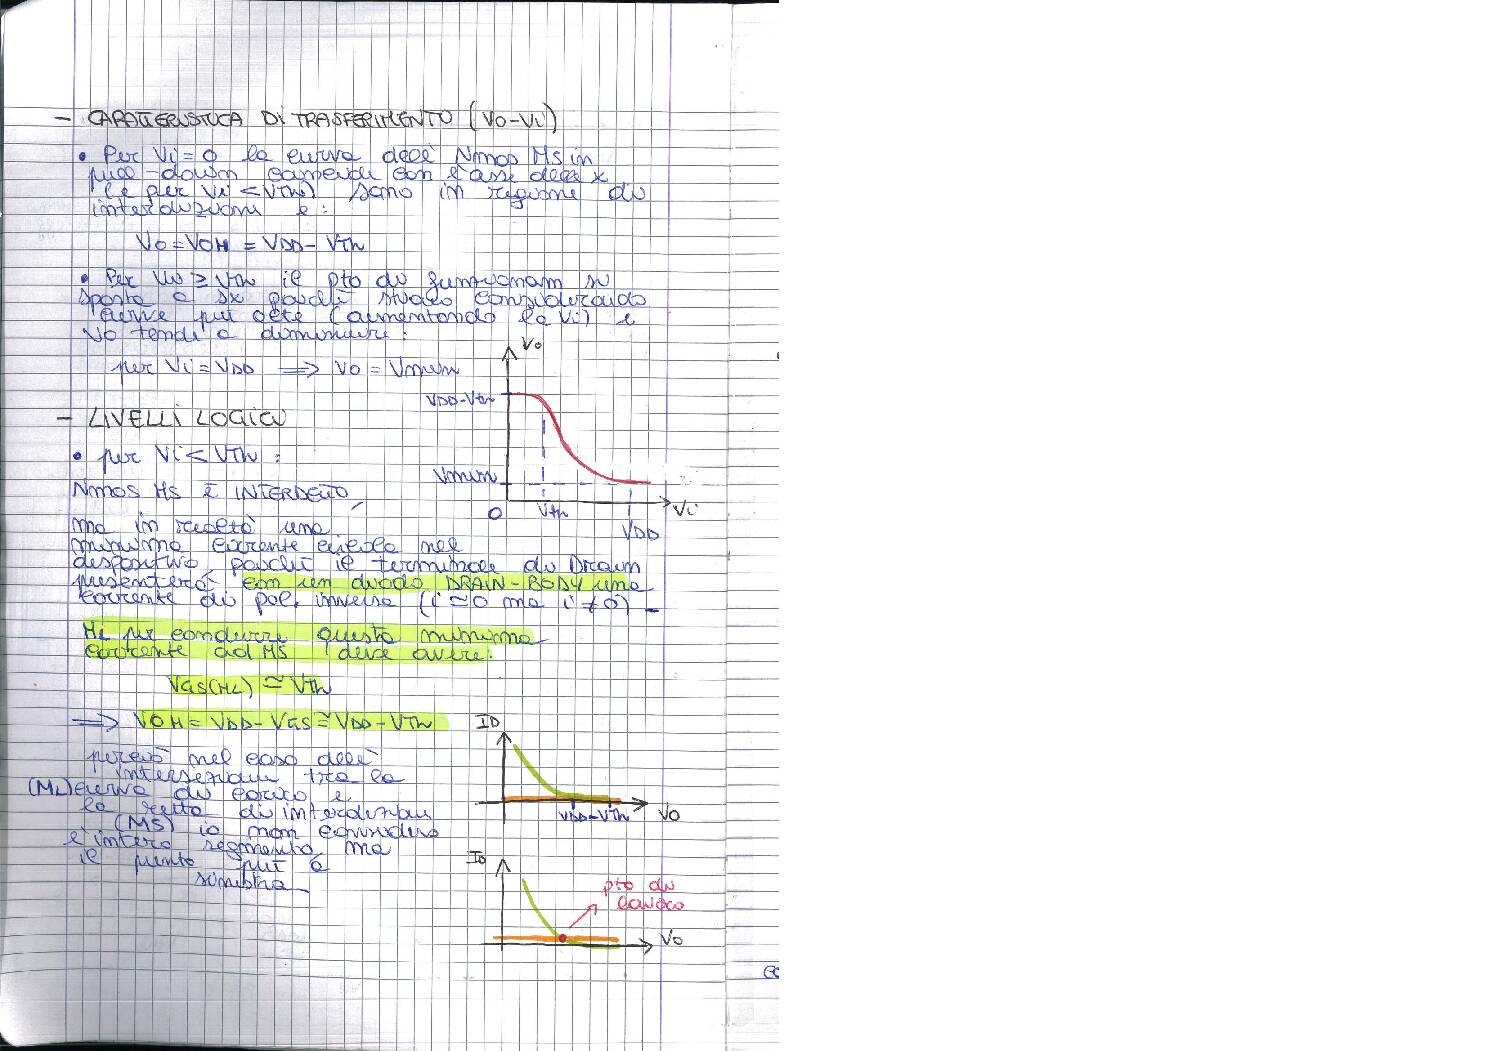 - CARATTERISTICA DI TRASFERIMENTO (Vo-Vi)
• Per Vi=0 la curva dell' Nmos MS in
pull-down coincide con l'asse delle x
(e per Vi < Vth) sono in regione di
interdizione e:
Vo = VOH = VDD - Vth
• Per Vi ≥ Vth il pto di funzionam si
sposta a sx poiché stiamo considerando
curve più alte (aumentando la Vi) e
Vo tende a diminuire:
per Vi = VDD ⟹ Vo = Vmin
Vo
VDD-Vth
Vmin
0
Vth
VDD
Vi
- LIVELLI LOGICI
• per Vi < Vth :
Nmos MS è INTERDETTO,
ma in realtà una
minima corrente circola nel
dispositivo, poiché il terminale di Drain
presenterà con un diodo DRAIN-BODY una
corrente di pol. inversa (i≃0 ma i≠0) -
ML per condurre questa minima
corrente ad MS deve avere:
VGS(ML) ≅ Vth
⟹ VOH = VDD - VGS ≅ VDD - Vth
perciò nel caso dell'
intersezione tra la
(ML) curva di carico e
la retta di interdizione
(MS) io non considero
l'intero segmento ma
il punto più a
sinistra
ID
VDD-Vth
Vo
ID
pto di
lavoro
Vo